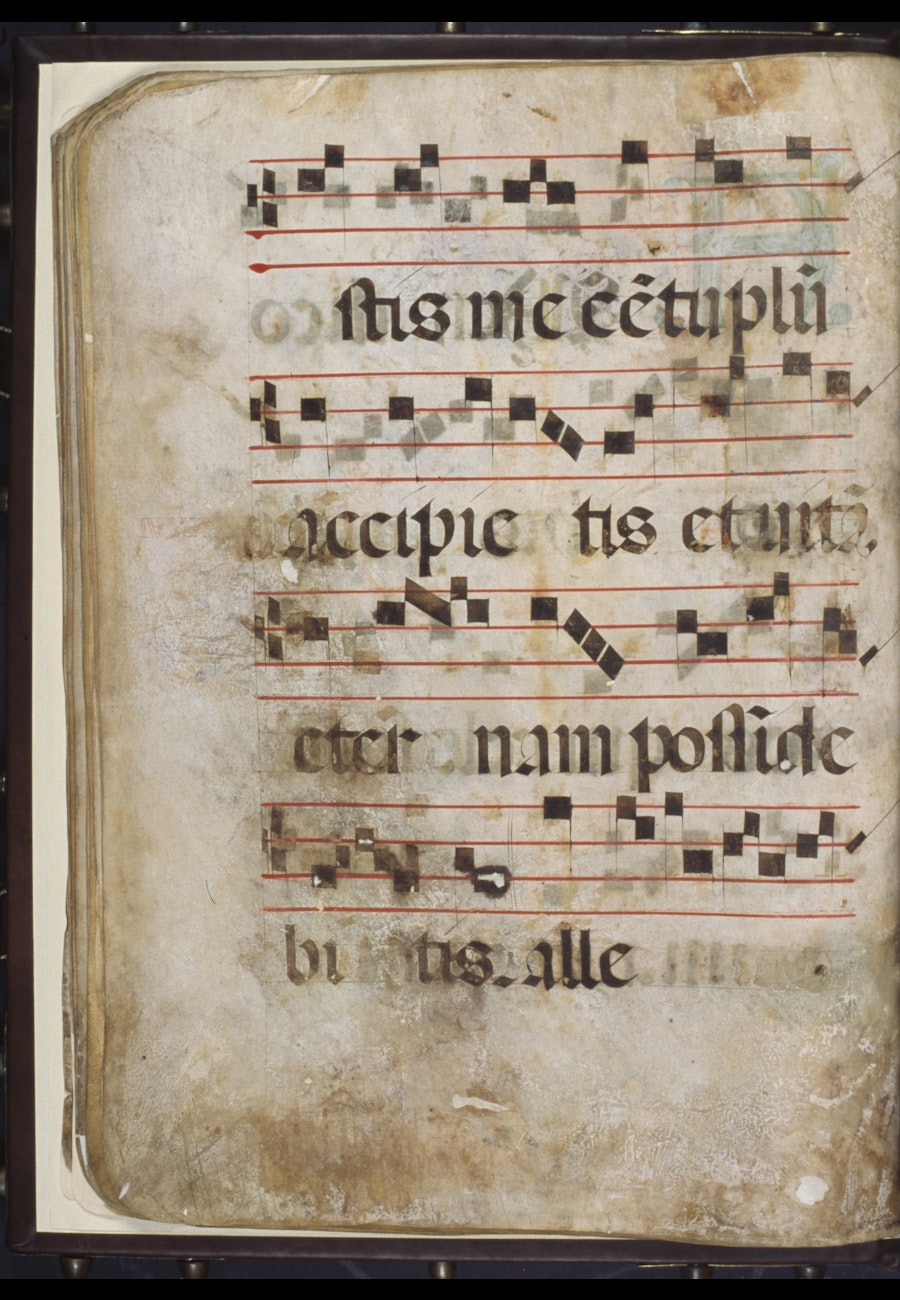 stis me cētuplū
accipie tis et uitā.
eter nam posside
bi tis. alle